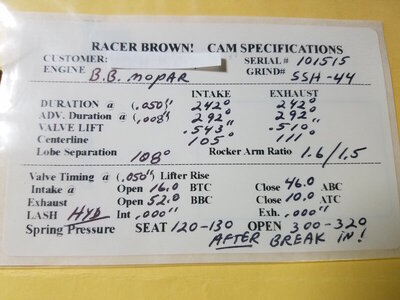 RACER BROWN! CAM SPECIFICATIONS
CUSTOMER: SERIAL # 101515
ENGINE B.B. MOPAR GRIND# SSH-44
INTAKE EXHAUST
DURATION @ (.050") 242° 242°
ADV. Duration @ (.008") 292° 292°
VALVE LIFT .543" .510"
Centerline 105° 111°
Lobe Separation 108° Rocker Arm Ratio 1.6/1.5
Valve Timing @ (.050") Lifter Rise
Intake @ Open 16.0 BTC Close 46.0 ABC
Exhaust Open 52.0 BBC Close 10.0 ATC
LASH HYD Int .000" Exh. .000"
Spring Pressure SEAT 120-130 OPEN 300-320
AFTER BREAK IN!